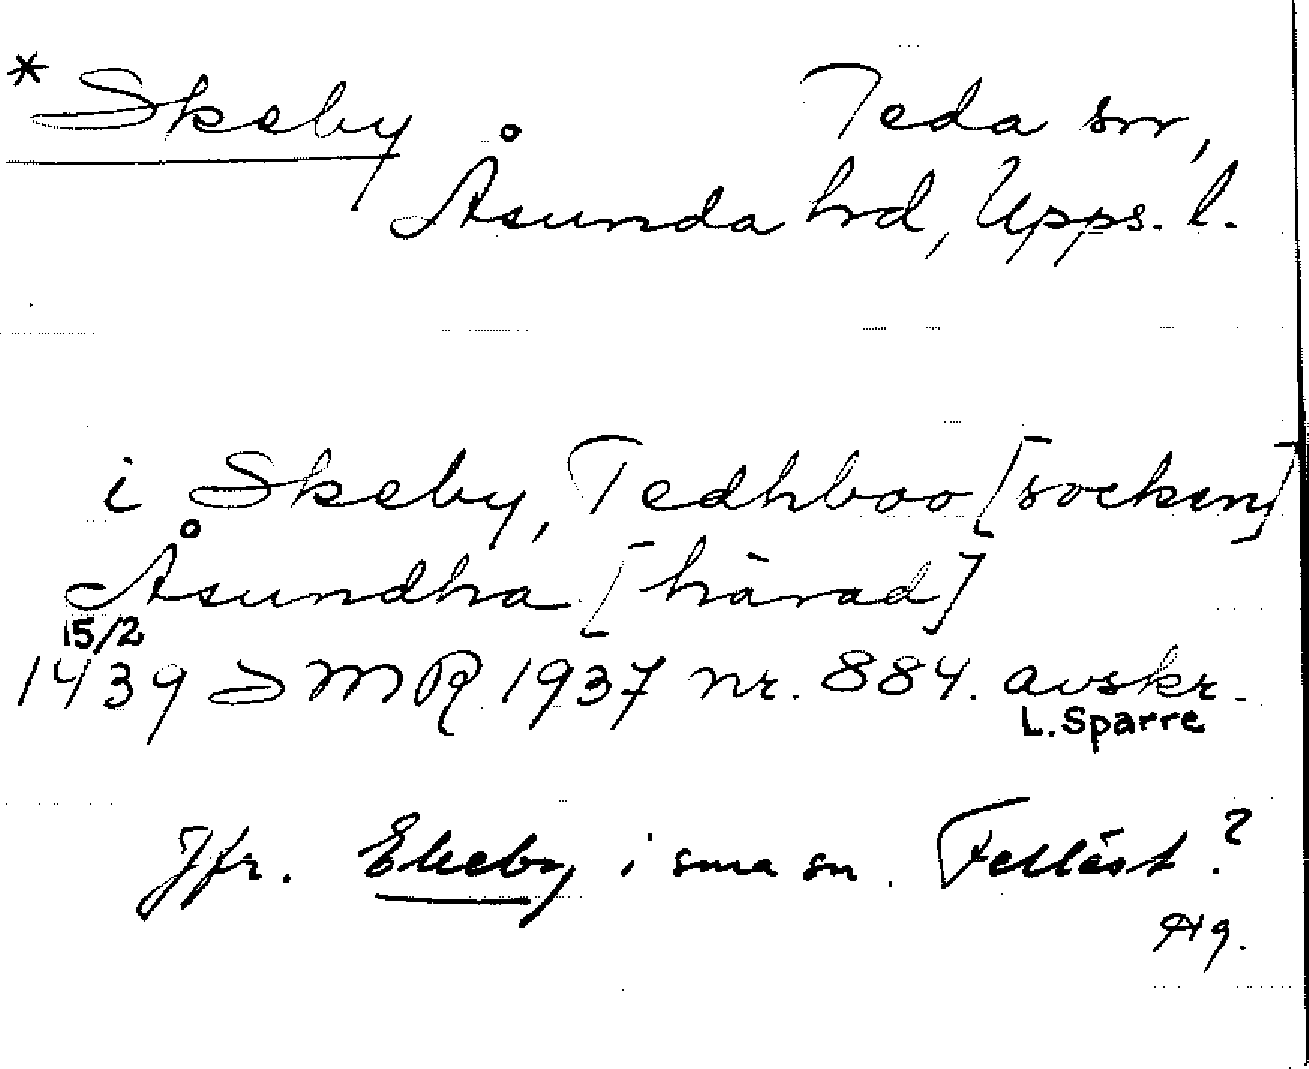 *Skeby Teda sn,
Åsunda hrd, Upps. l.
i Skeby, Tedhboo [socken]
Åsundha [härad]
15/2
1439 SMR 1937 nr. 884. avskr.
L. Sparre
Jfr. Ekeby i sma sn. Felläst?